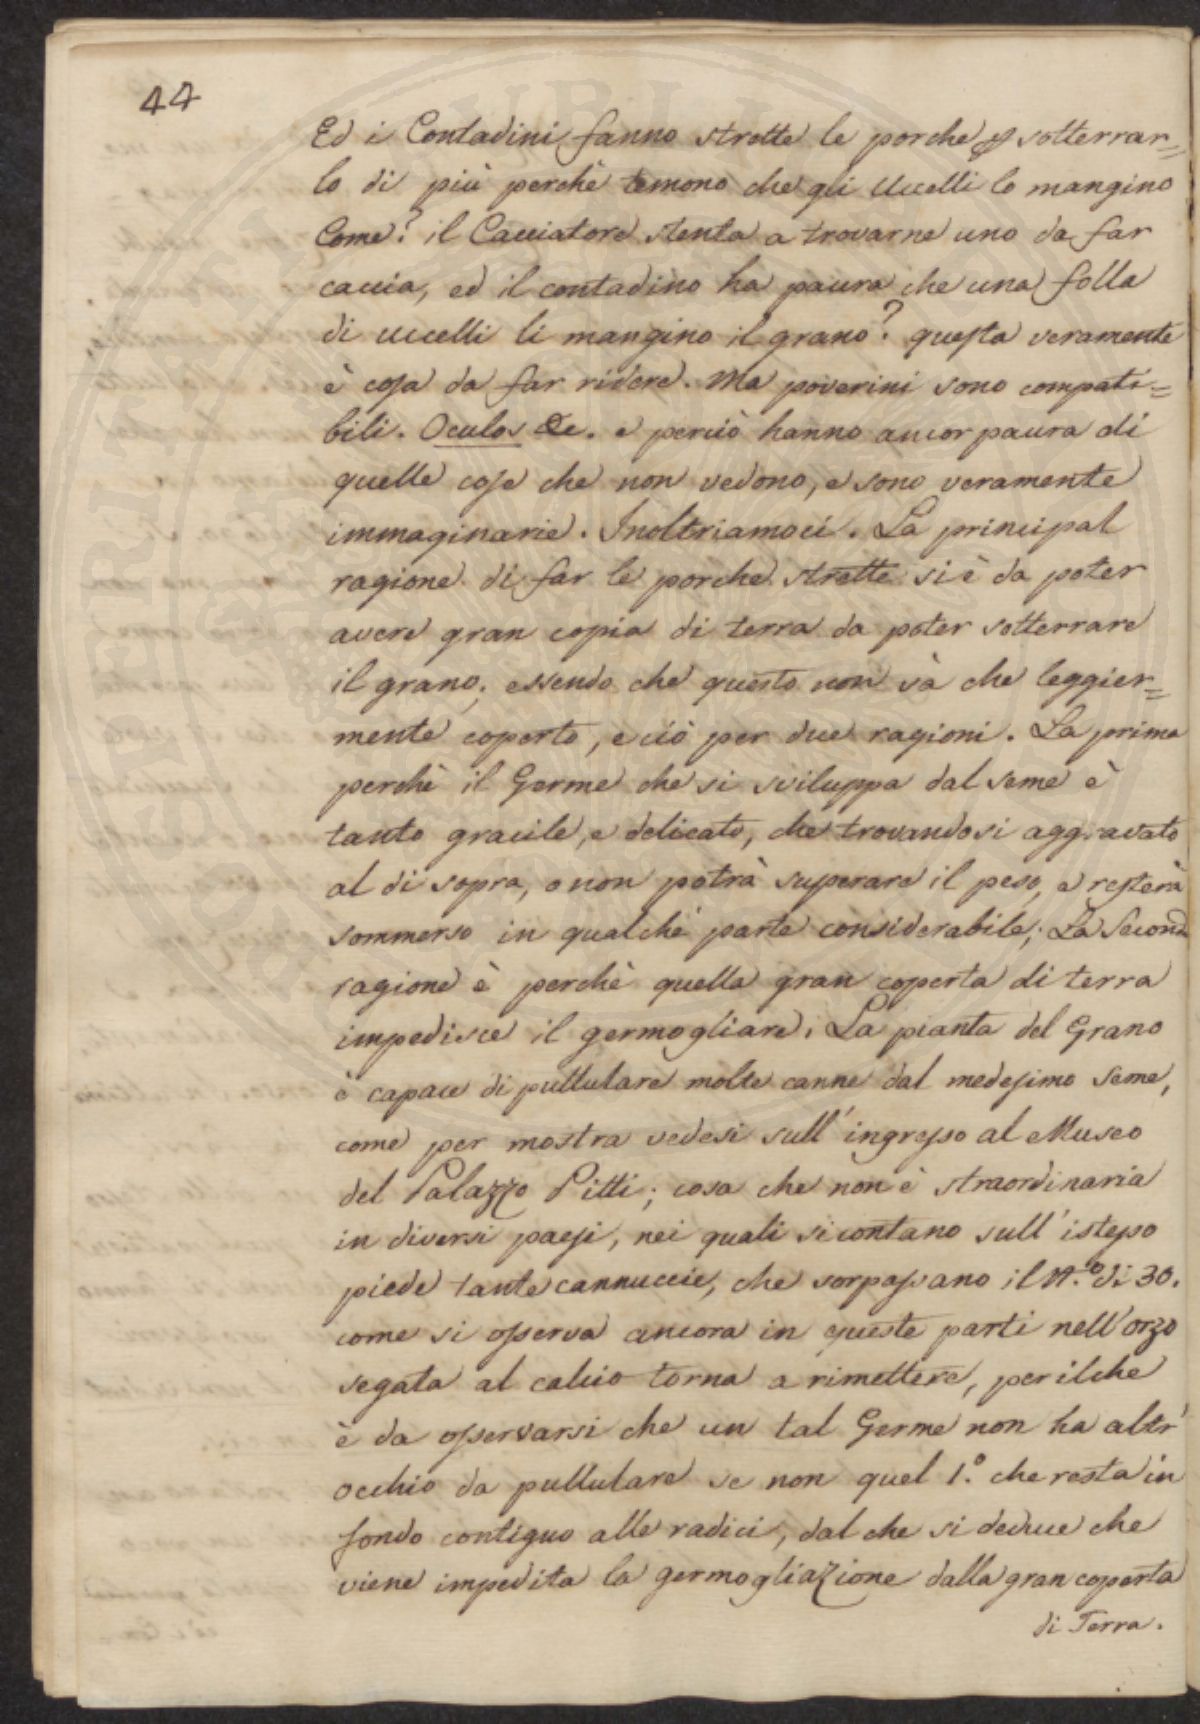 44
Ed i Contadini fanno strette le porche p sotterrar=
lo di più perchè temono che gli Uccelli lo mangino
Come? il Cacciatore stenta a trovarne uno da far
caccia, ed il contadino ha paura che una folla
di uccelli li mangino il grano? questa veramente
è cosa da far ridere. Ma poverini sono compati=
bili. Oculos &c. e perciò hanno ancor paura di
quelle cose che non vedono, e sono veramente
immaginarie. Inoltriamoci. La principal
ragione di far le porche strette si è da poter
avere gran copia di terra da poter sotterrare
il grano; essendo che questo non và che leggier=
mente coperto, e ciò per due ragioni. La prima
perchè il Germe che si sviluppa dal seme è
tanto gracile, e delicato, che trovandosi aggravato
al di sopra, o non potrà superare il peso, e resterà
sommerso in qualche parte considerabile; La Seconda
ragione è perchè quella gran coperta di terra
impedisce il germogliare. La pianta del Grano
è capace di pullulare molte canne dal medesimo seme,
come per mostra vedesi sull' ingresso al Museo
del Palazzo Pitti; cosa che non è straordinaria
in diversi paesi, nei quali si contano sull' istesso
piede tante cannuccie, che sorpassano il N.º di 30.
come si osserva ancora in queste parti nell' orzo
segata al calcio torna a rimettere, per il che
è da osservarsi che un tal Germe non ha altr'
occhio da pullulare se non quel 1.º che resta in
fondo contiguo alle radici, dal che si deduce che
viene impedita la germogliazione dalla gran coperta
di Terra.